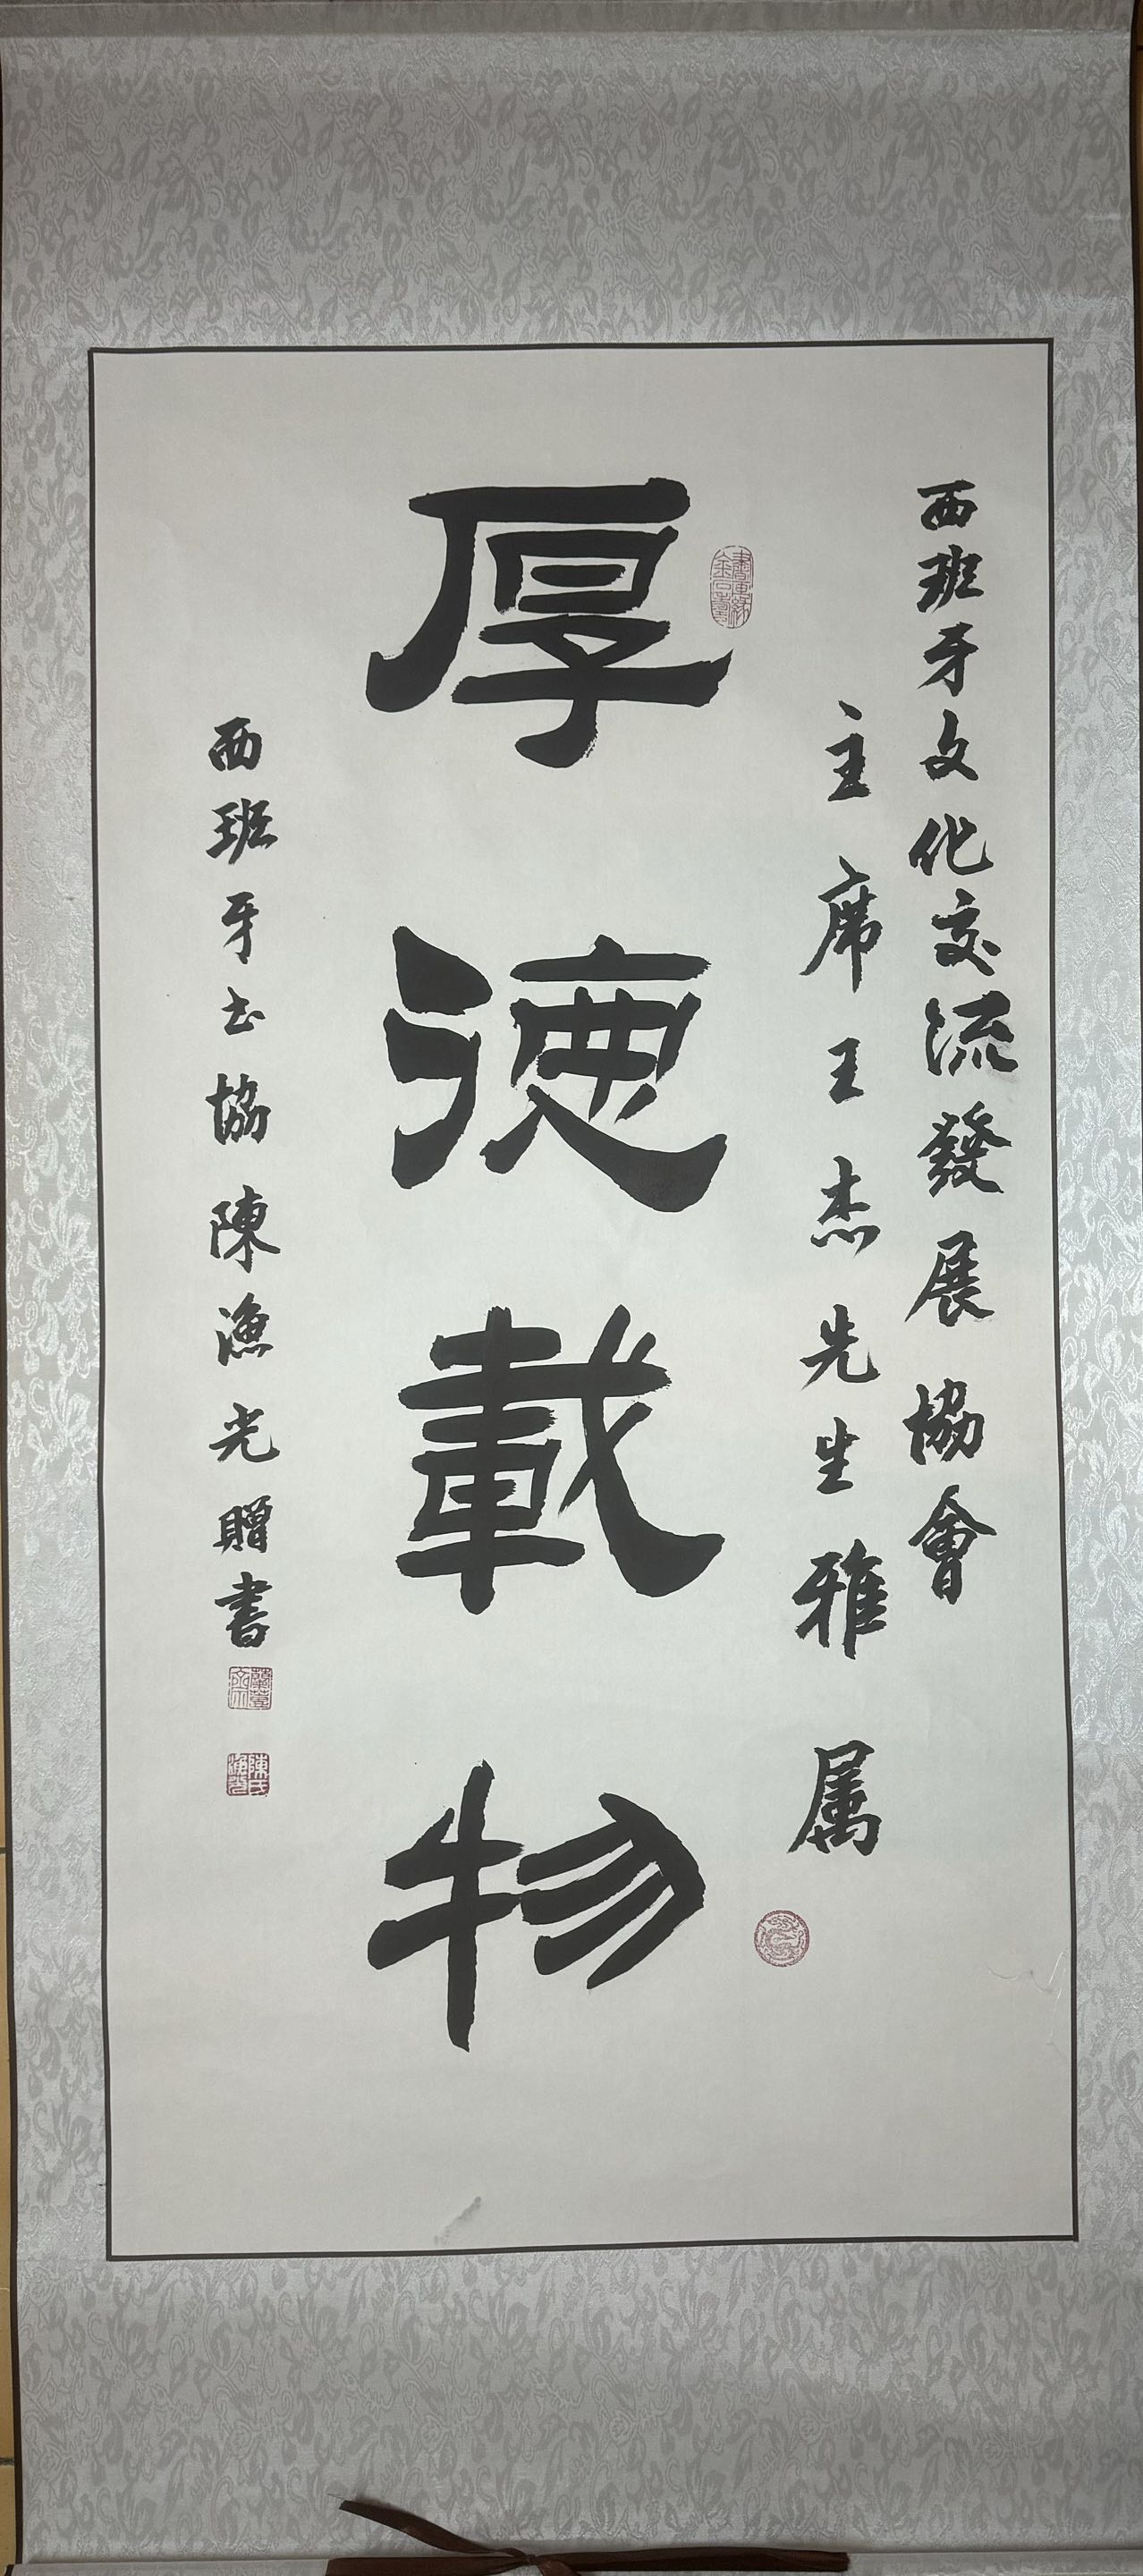 西班牙文化交流發展協會
主席王杰先生雅属
厚德載物
西班牙书協陳漁光贈書
陳氏漁光